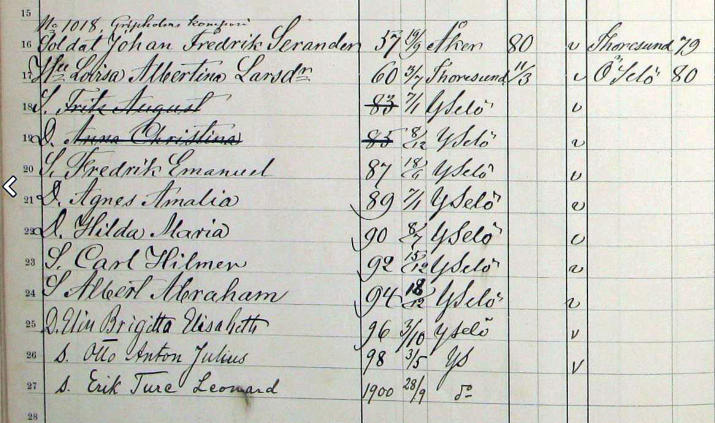 15
No 1018, Gripsholms kompani
16 Soldat Johan Fredrik Serander 57 19/9 Åker 80 v Thoresund 79
17 Hu Lovisa Albertina Larsdr 60 3/7 Thoresund 11/3 v Ö Selö 80
18 S. Fritz August 83 7/1 YSelö v
19 D. Anna Christina 85 8/12 YSelö v
20 S. Fredrik Emanuel 87 18/6 YSelö v
21 D. Agnes Amalia 89 7/1 YSelö v
22 D. Hilda Maria 90 8/7 YSelö v
23 S. Carl Hilmer 92 15/12 YSelö v
24 S Albert Abraham 94 18/12 YSelö v
25 D. Elin Brigitta Elisabeth 96 3/10 YSelö v
26 S. Otto Anton Julius 98 3/5 YS v
27 S. Erik Ture Leonard 1900 28/9 do
28